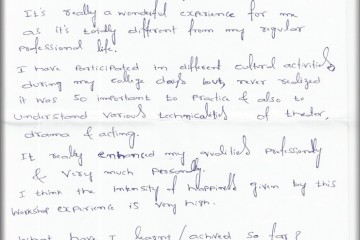 It's really a wonderful experience for me
as it's totally different from my regular
professional life.
I have participated in different cultural activities
during my college days but, never realized
it was so important to practice & also to
understand various technicalities of theater,
drama & acting.
It really enhanced my qualities professionally
& very much personally.
I think the intensity of happiness given by this
workshop experience is very high.
What have I learnt/achived so far?